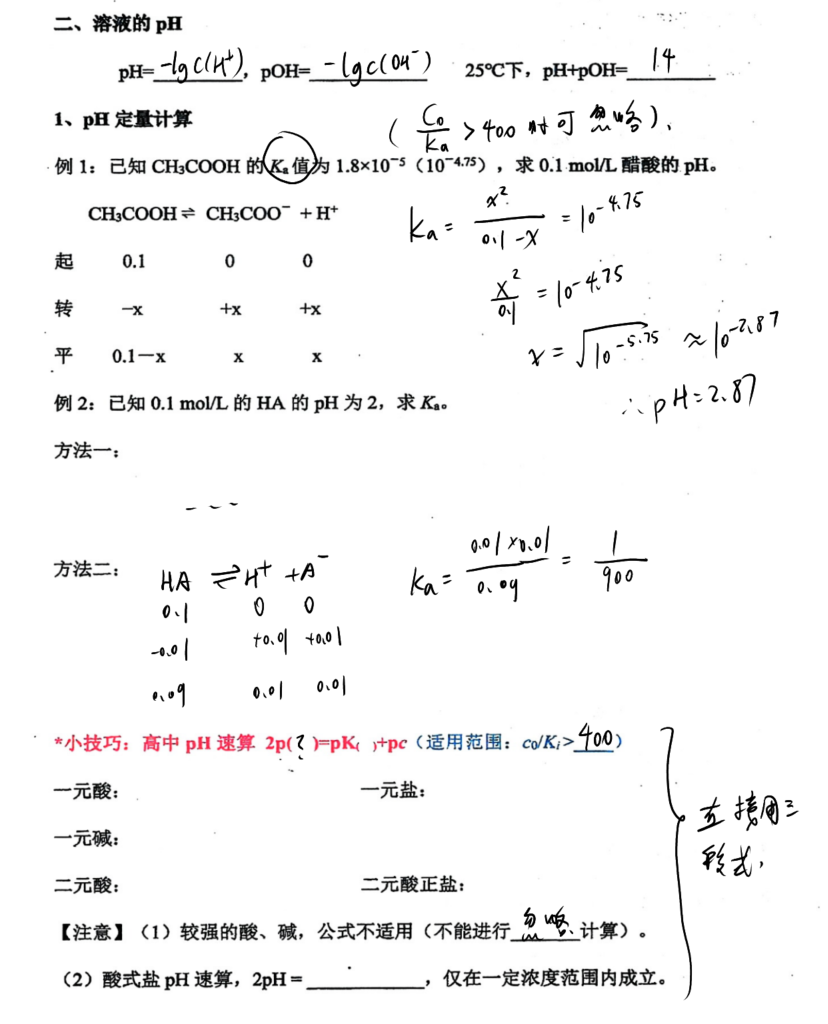 二、溶液的 pH
pH= -lg c(H⁺), pOH= -lg c(OH⁻) 25℃下，pH+pOH= 14
1、pH 定量计算
( C₀/Ka > 400 时可忽略).
例 1：已知 CH₃COOH 的 Kₐ 值为 1.8×10⁻⁵（10⁻⁴·⁷⁵），求 0.1 mol/L 醋酸的 pH。
CH₃COOH ⇌ CH₃COO⁻ + H⁺
Ka = x²/(0.1-x) = 10⁻⁴·⁷⁵
起 0.1 0 0
x²/0.1 = 10⁻⁴·⁷⁵
转 −x +x +x
x = √10⁻⁵·⁷⁵ ≈ 10⁻²·⁸⁷
平 0.1−x x x
∴ pH = 2.87
例 2：已知 0.1 mol/L 的 HA 的 pH 为 2，求 Kₐ。
方法一：
方法二： HA ⇌ H⁺ + A⁻
Ka = (0.01×0.01)/0.09 = 1/900
0.1 0 0
-0.01 +0.01 +0.01
0.09 0.01 0.01
*小技巧：高中 pH 速算 2p(?)=pK( )+pc（适用范围：c₀/Kᵢ> 400）
一元酸： 一元盐：
一元碱：
二元酸： 二元酸正盐：
直接用三
段式.
【注意】（1）较强的酸、碱，公式不适用（不能进行 忽略 计算）。
（2）酸式盐 pH 速算，2pH＝________，仅在一定浓度范围内成立。